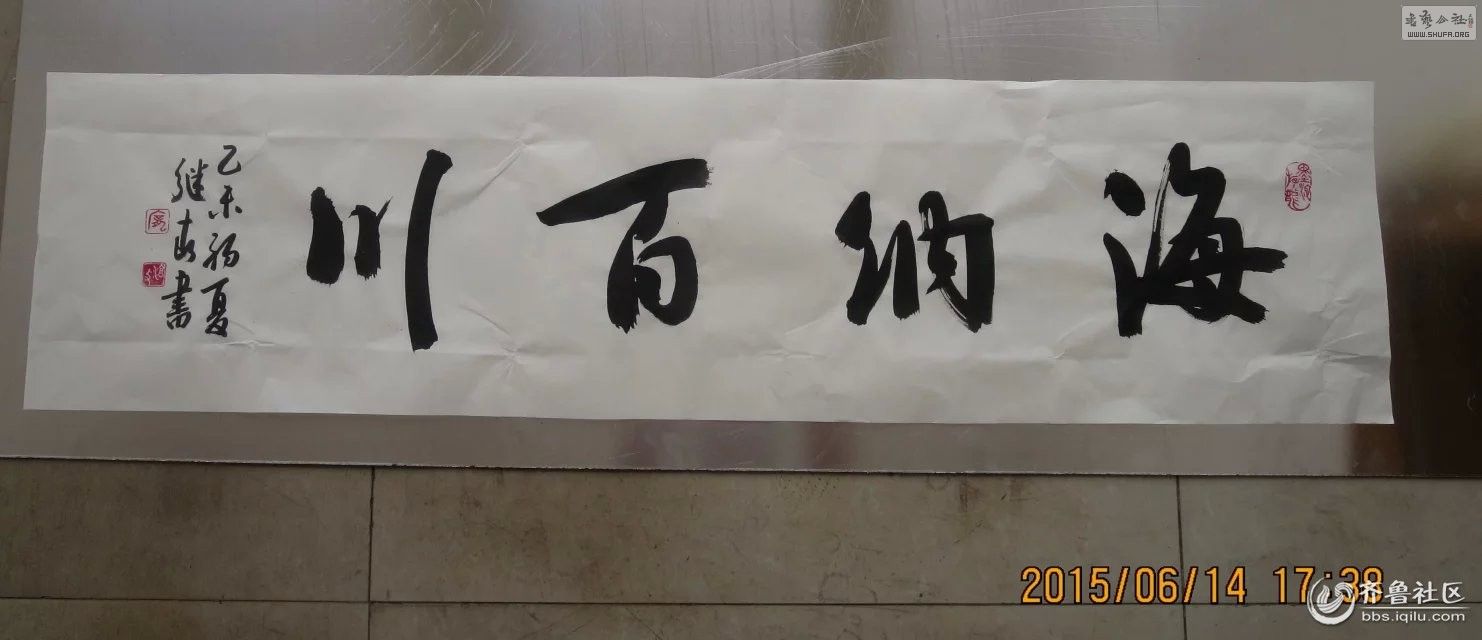 海纳百川
乙未初夏
继春书
书艺公社
WWW.SHUFA.ORG
2015/06/14 17:38
齐鲁社区
bbs.iqilu.com